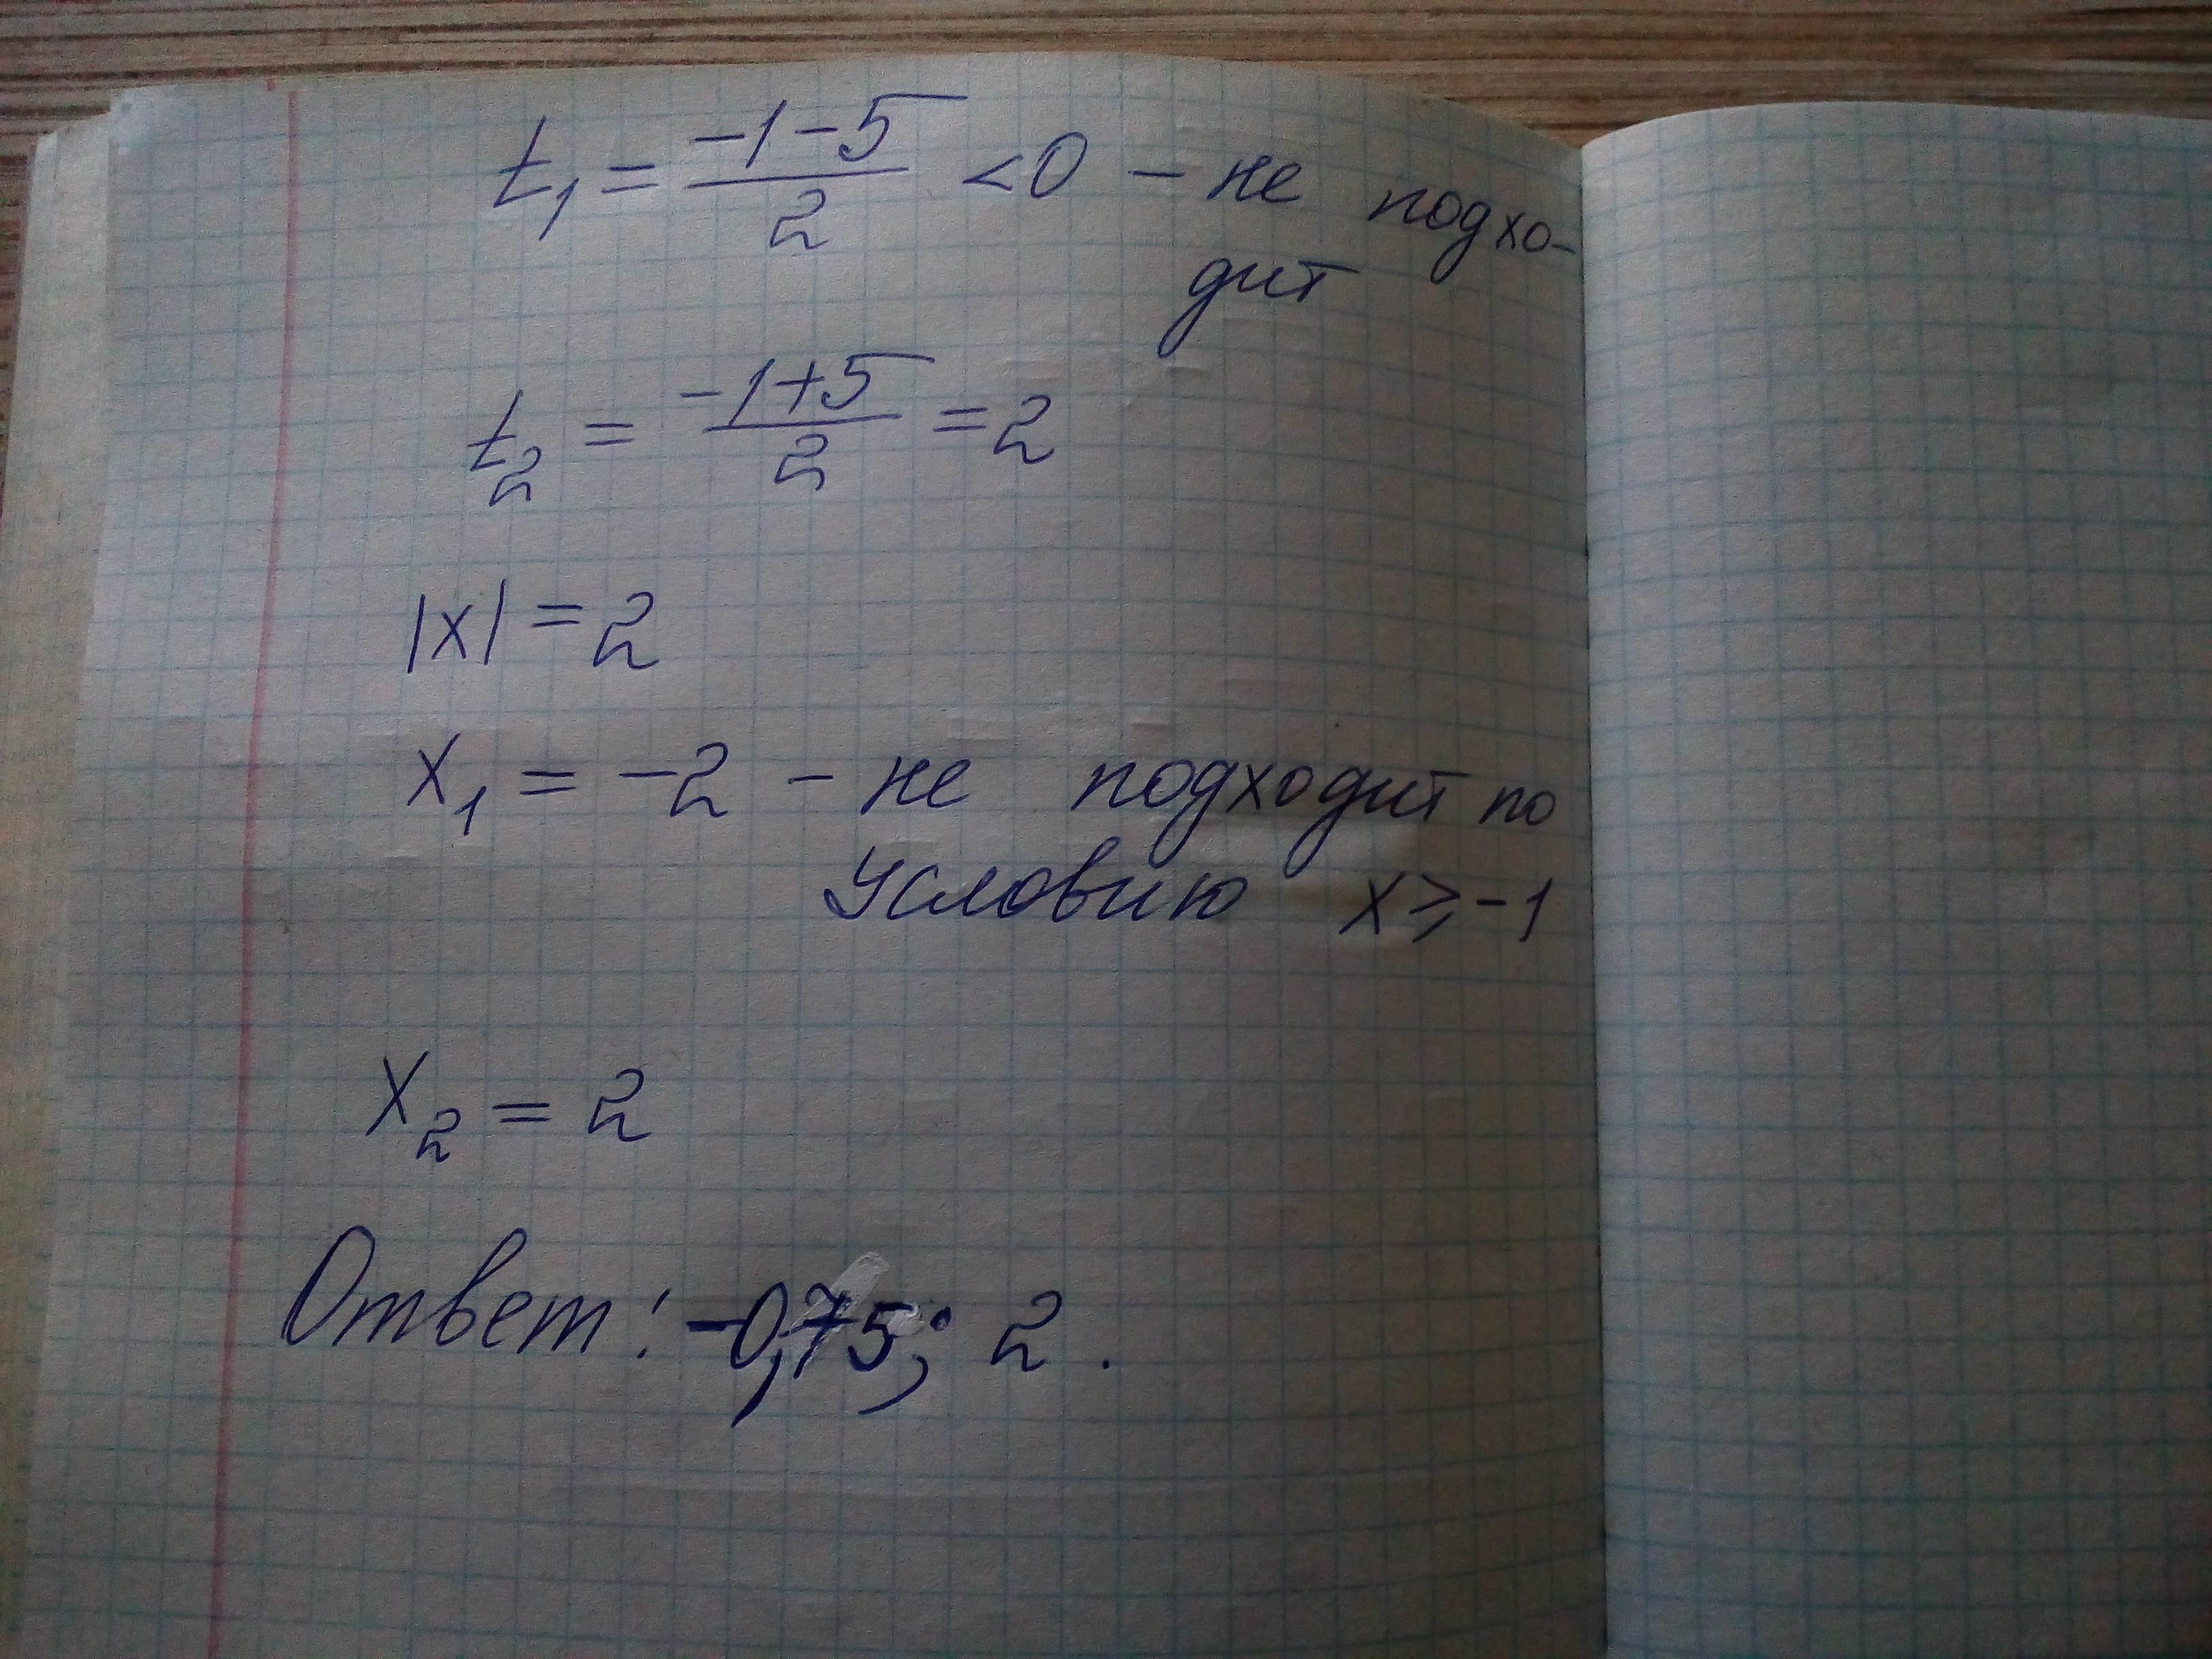 t₁ = (-1-5)/2 < 0 – не подхо-
дит
t₂ = (-1+5)/2 = 2
|x| = 2
x₁ = -2 – не подходит по
условию x ⩾ -1
x₂ = 2
Ответ: -0,75; 2.